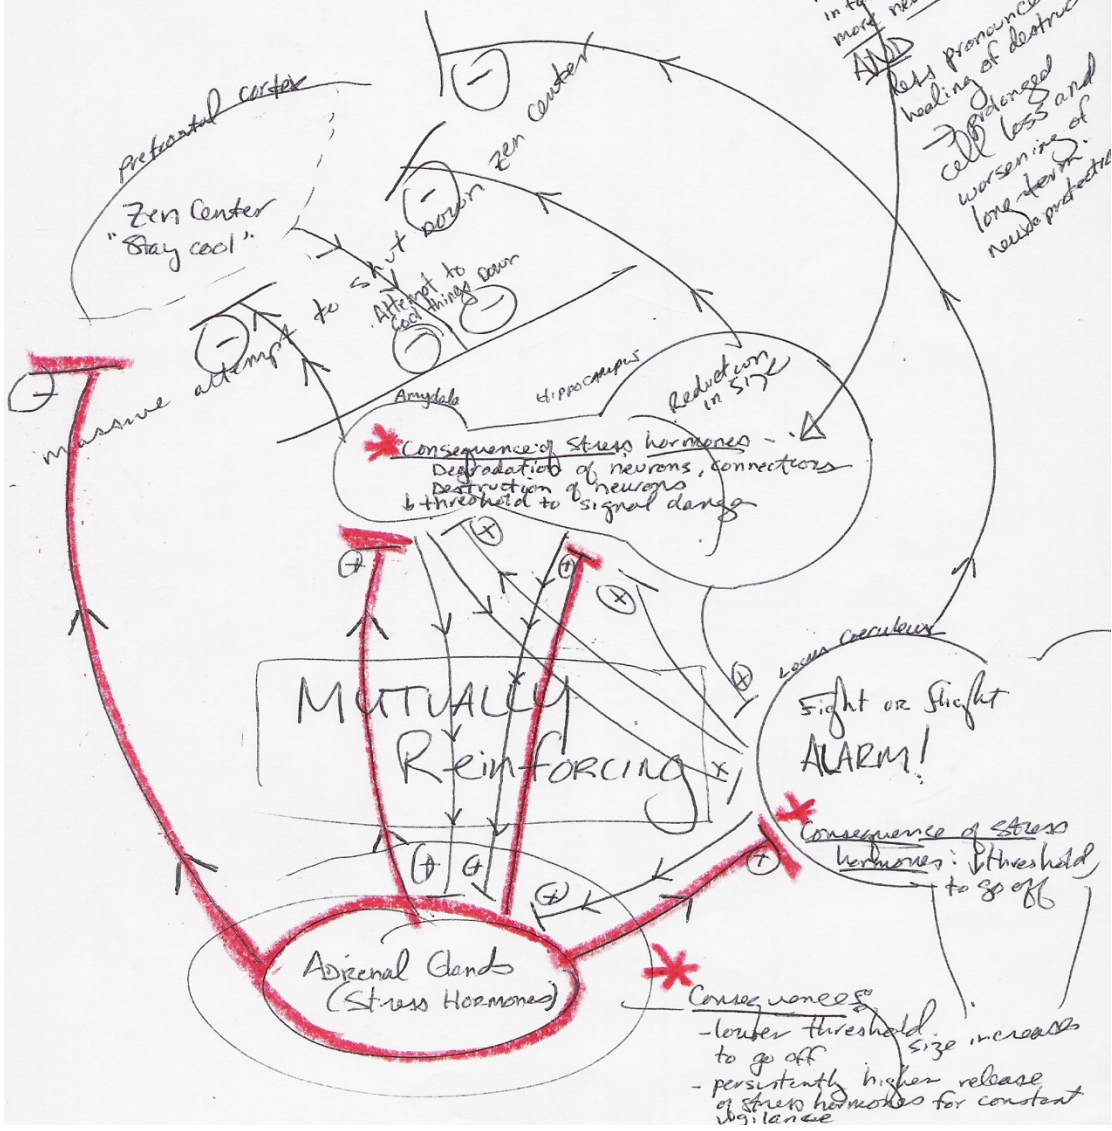 more
AND
less pronounced
healing of destruc
→ prolonged
cell loss and
worsening of
long-term
neuroprotectio
Prefrontal cortex
Zen Center
"Stay cool"
massive attempt to shut down zen center
Attempt to
cool things down
Amydala
HIPPOCAMPUS
Reduction
in size
Consequence of stress hormones
Degradation of neurons, connections
Destruction of neurons
↓ threshold to signal danger
MUTUALLY
Reinforcing
Locus Coeruleus
Fight or flight
ALARM!
Consequence of stress
hormones: ↓ threshold
to go off
Adrenal Glands
(Stress Hormones)
Consequences:
- lower threshold
to go off
size increases
- persistently higher release
of stress hormones for constant
vigilance